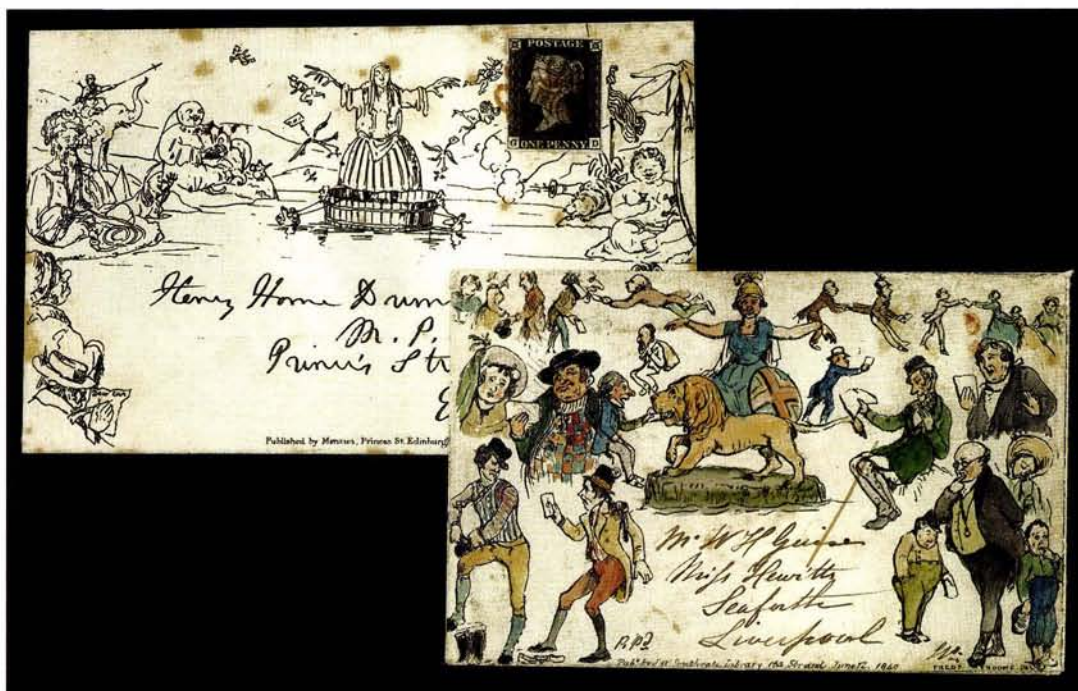 POSTAGE
G ONE PENNY D
Henry Home Drum
M. P.
Princes Str
Dear Sir
Published by Menzies, Princes St. Edinburg
Mr W H
Miss Hewitts
Seaforth
Liverpool
Library 164 Strand June 12, 1840